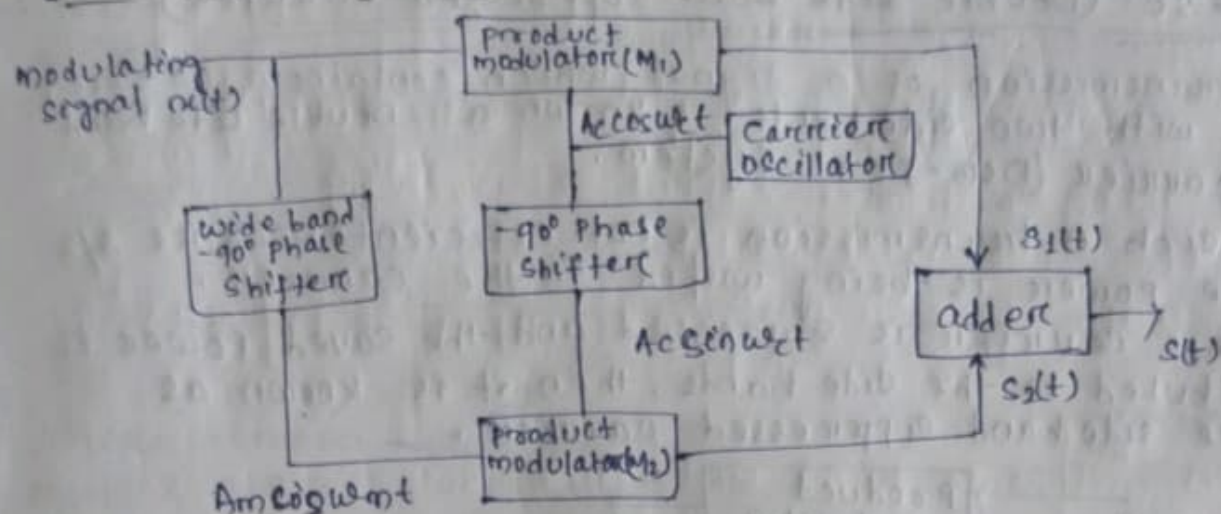 modulating
signal x(t)
product
modulator(M1)
Accosωct
carrier
oscillator
wide band
-90° phase
shifter
-90° phase
shifter
S1(t)
adder
S(t)
Ac sinωct
S2(t)
product
modulator(M2)
Am cosωmt